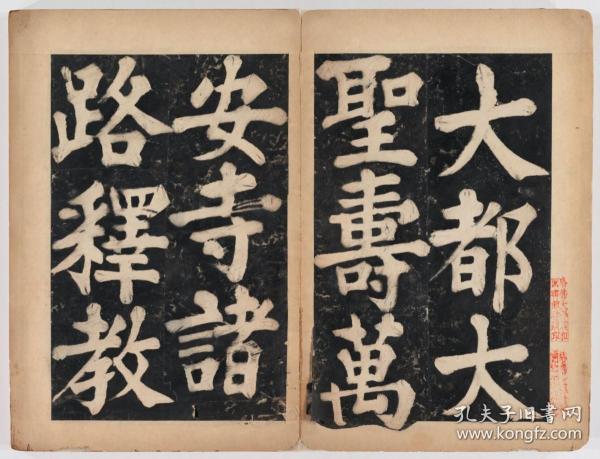 大都大
聖壽萬
安寺諸
路釋教
孔夫子旧书网
www.kongfz.com